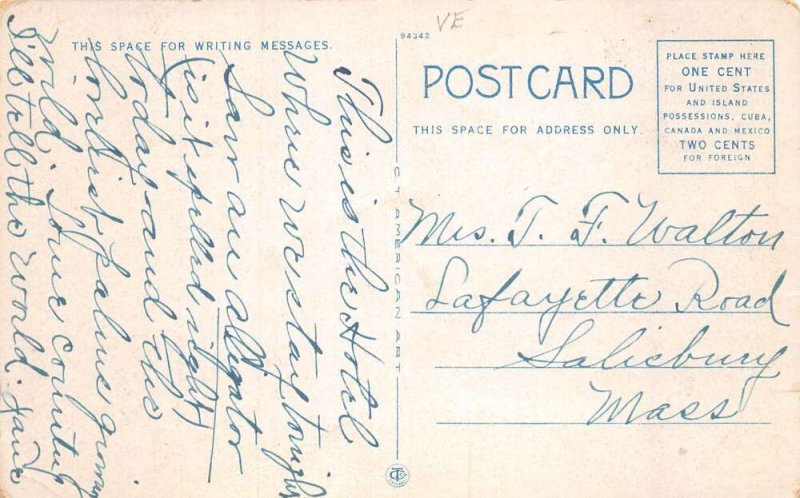 THIS SPACE FOR WRITING MESSAGES.
This is the Hotel
Where we stay tonight
Saw an alligator
(is it spelled right)
today and the
loveliest palms growing
wild. Some country
I'll tell the world. Jane
94342
VE
POST CARD
THIS SPACE FOR ADDRESS ONLY.
PLACE STAMP HERE
ONE CENT
FOR UNITED STATES
AND ISLAND
POSSESSIONS, CUBA,
CANADA AND MEXICO
TWO CENTS
FOR FOREIGN
C. T. AMERICAN ART
Mrs. T. F. Walton
Lafayette Road
Salisbury
Mass